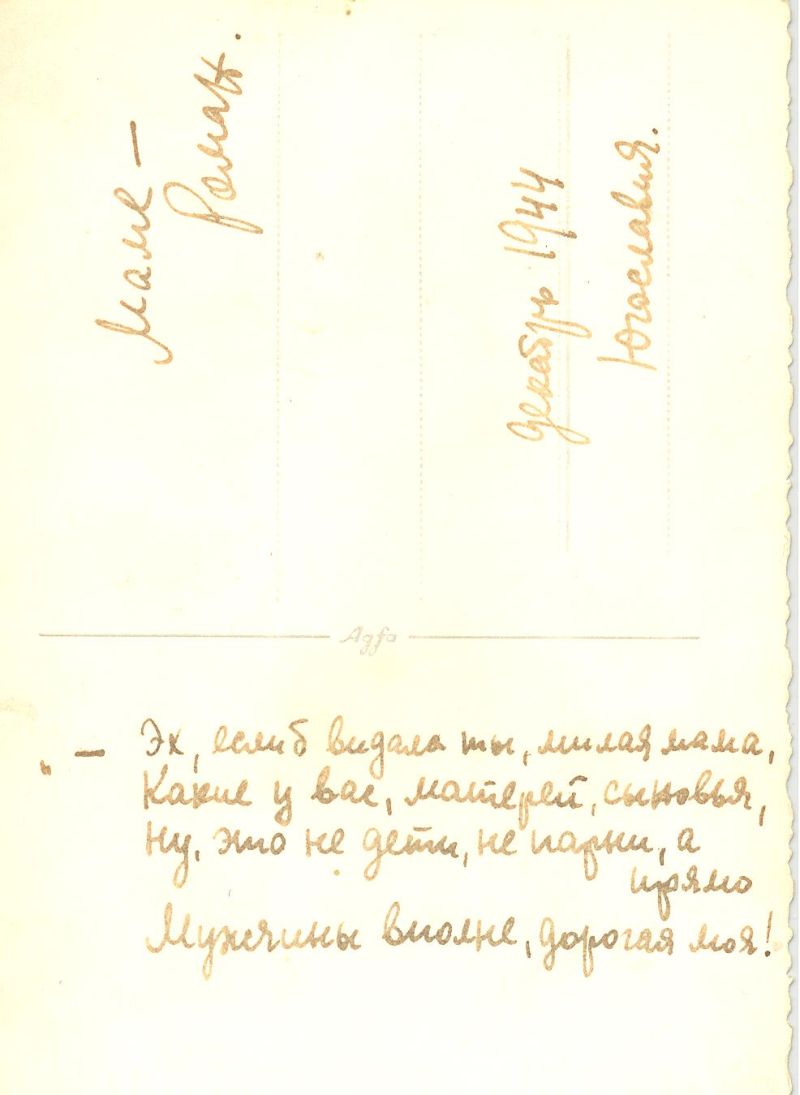 Маме –
Роман.
декабрь 1944
Югославия.
Agfa
" – Эх, если б видала ты, милая мама,
Какие у вас, матерей, сыновья,
Ну, это не дети, не парни, а
прямо
Мужчины вполне, дорогая моя!